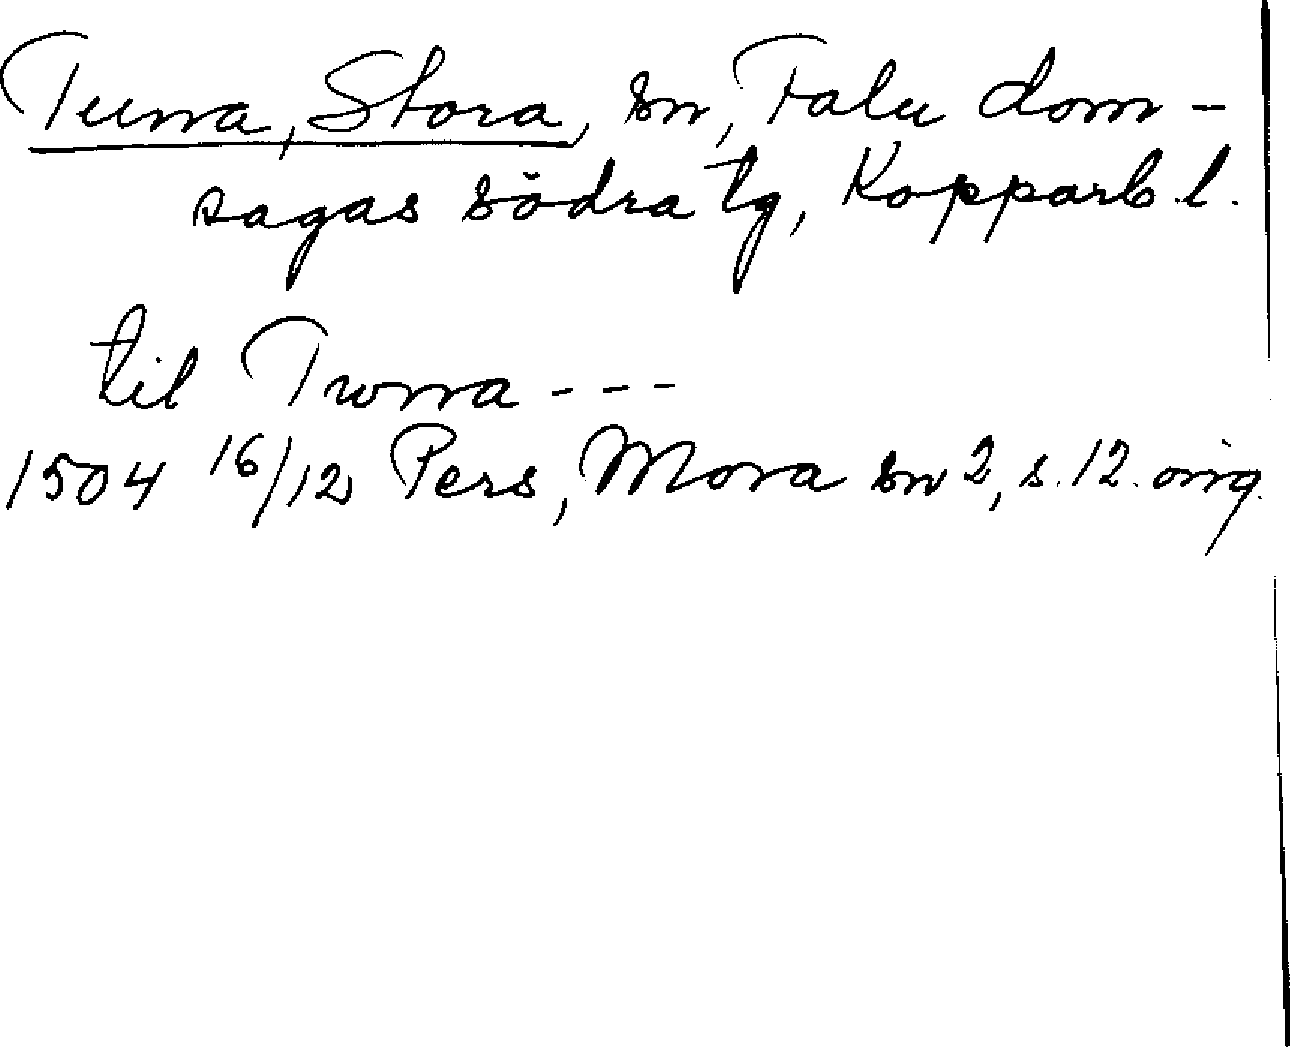 Tuna, Stora, sn, Falu dom-
sagas södra tg, Kopparb. l.
til Twna ---
1504 16/12 Pers, Mora sn 2, s. 12. orig.